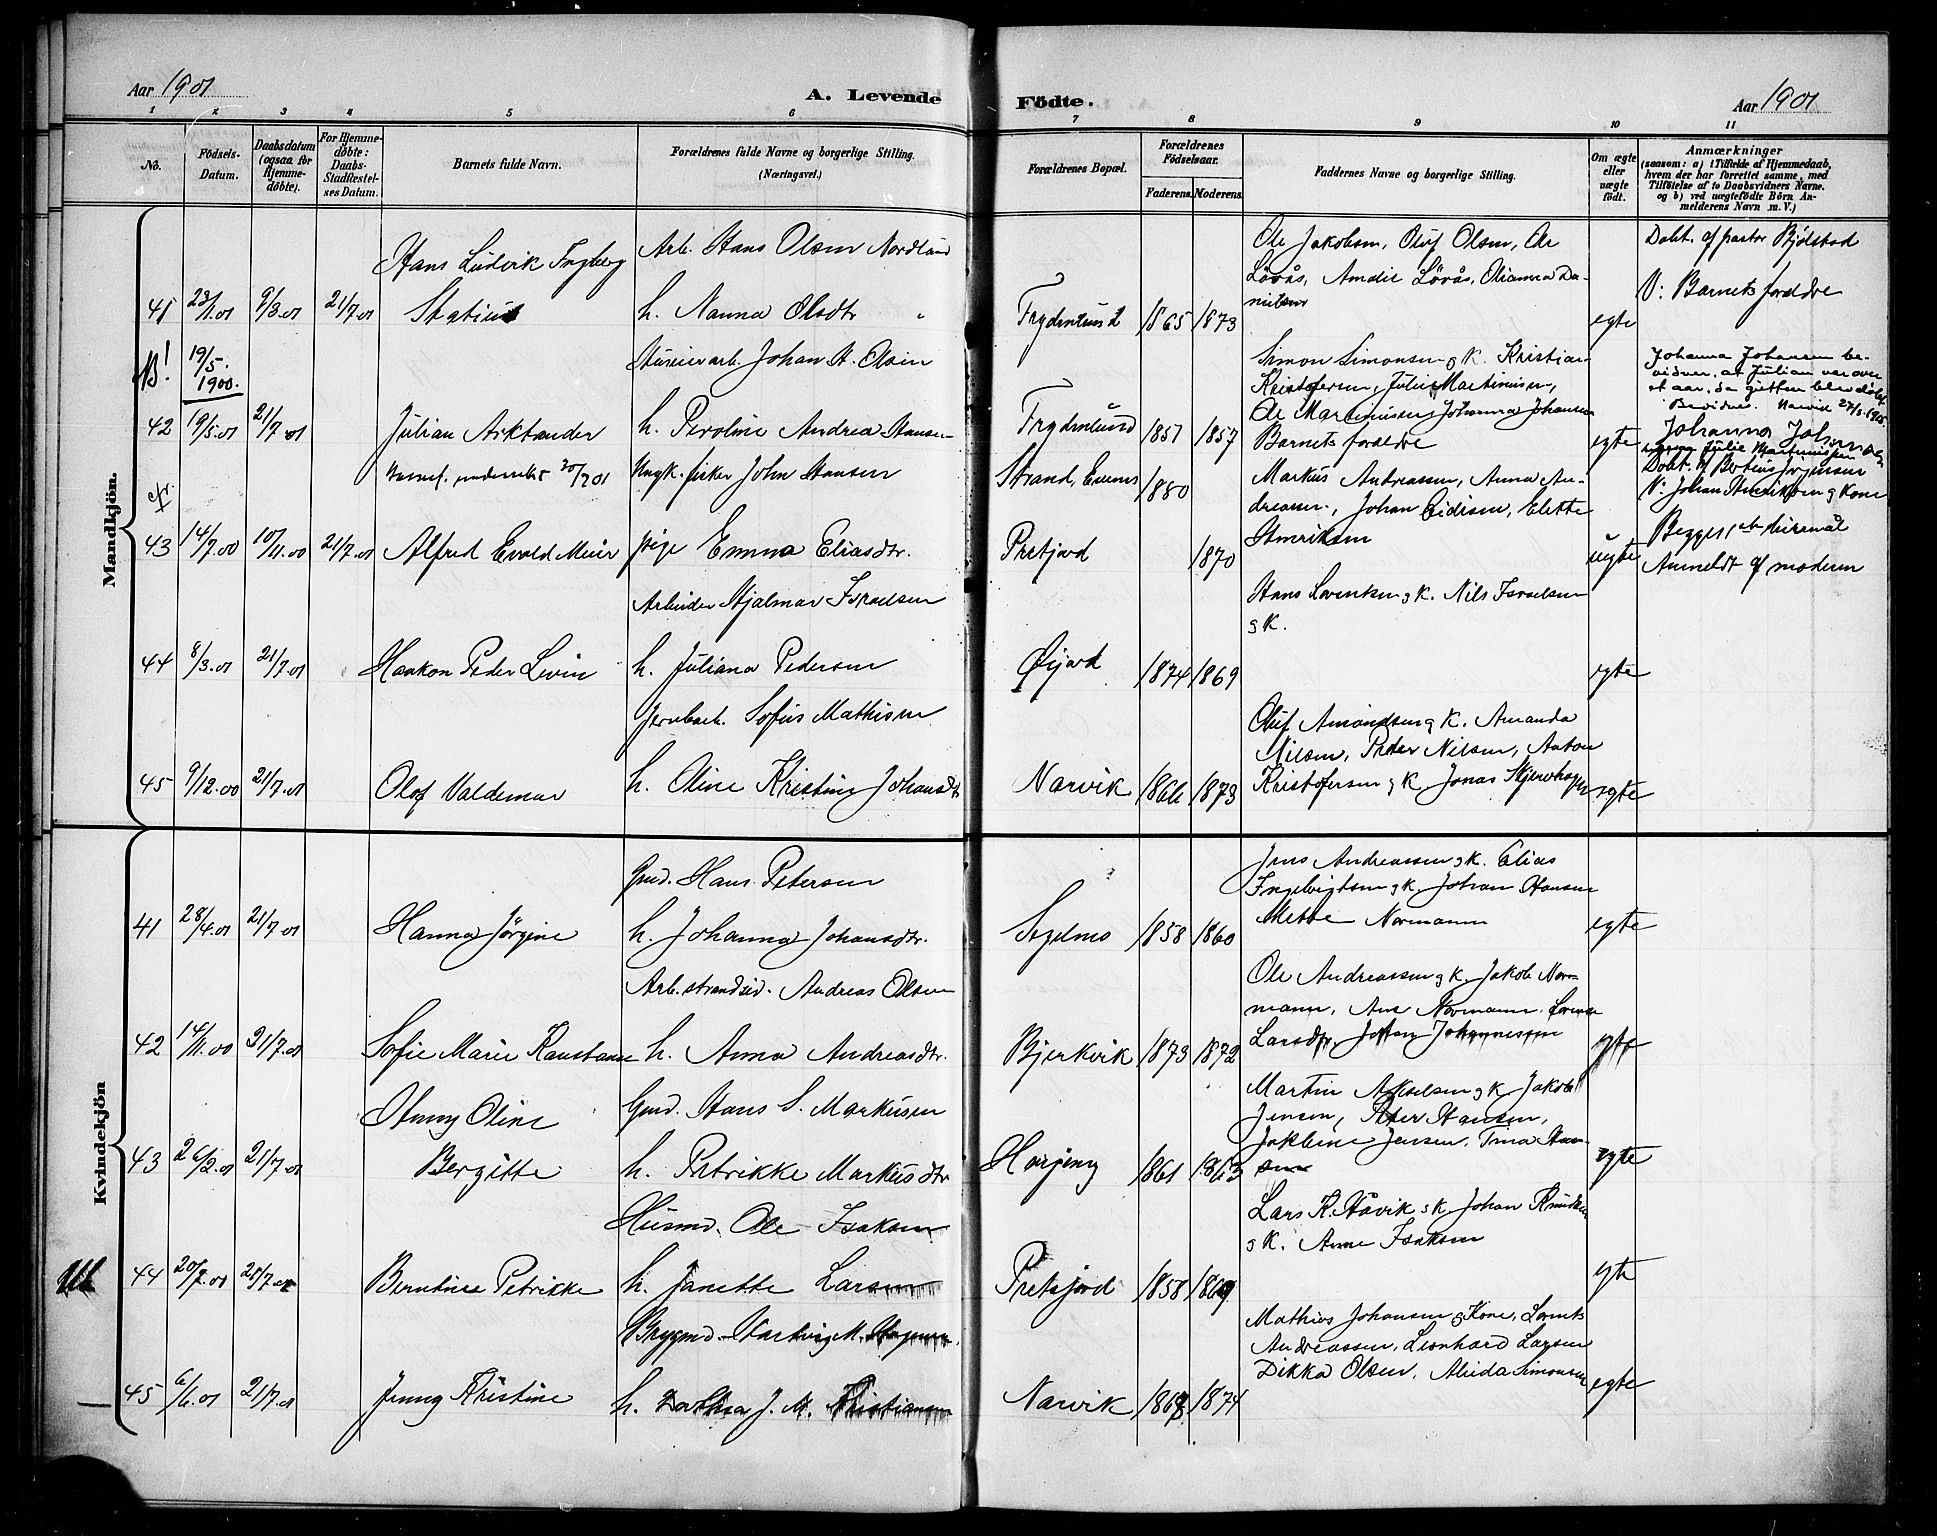 Aar 1901
A. Levende
Födte.
Aar 1901
1 2 3 4 5 6 7 8 9 10 11
No.
Födsels-
Datum.
Daabsdatum
(ogsaa for
Hjemme-
döbte).
For Hjemme-
döbte:
Daabs-
Stadfæstel-
ses Datum.
Barnets fulde Navn.
Forældrenes fulde Navne og borgerlige Stilling.
(Næringsvei.)
Forældrenes Bopæl.
Forældrenes
Födselsaar.
Faderens. Moderens.
Faddernes Navne og borgerlige Stilling.
Om ægte
eller
uægte
födt.
Anmærkninger
(saasom: a) i Tilfælde af Hjemmedaab,
hvem der har forrettet samme, med
Tilföielse af to Daabsvidners Navne.
og b) ved uægtefödte Börn An-
melderens Navn m. V.)
Mandkjön.
41 23/1.01 9/3.01 21/7.01
Hans Ludvik Ingberg
Statius
Arb. Hans Olsen Nordlund
h. Nanna Olsdtr "
Frydenlund 1865 1873
Ole Jakobsen, Oluf Olsen, Ole
Lövås, Amalie Lövås, Olianna Da-
nielsen
egte
Döbt. af pastor Bjölstad
V: Barnets forældre
NB! 19/5.
1900.
42 19/5.01 21/7.01
Julian Arktander
Minerarb. Johan A. Olsen
h. Peroline Andrea Hansen
Frydenlund 1851 1857
Simon Simonsen og K. Kristian
Kristofersen, Julie Martinusen,
Ole Martinusen, Johanna Johansen
Barnets forældre
egte
Johanna Johansen be-
vidner, at Julian var over
et aar, da gutten blev döbt.
Bevidnes. Narvik 27/3.1905.
Johanna Johansen
Julie Martinussen
43 14/7.00 10/11.00 21/7.01
Alfred Evald Meier
Ungk. fisker John Hansen
pige Emma Eliasdtr.
Strand, Evenes 1880
Pretjord 1870
Markus Andreassen, Anna An-
dreasen, Johan Eidisen, Elette
Henriksen
uegte
Döbt. af Bertius Jörgensen
V: Johan Henriksen og Kone
Begges 1ste leiermål
Anmeldt af moderen
44 8/3.01 21/7.01
Haakon Peder Levin
Arbeider Hjalmar Israelsen
h. Juliana Pedersen
Öijord 1874 1869
Hans Lorentsen og K. Nils Israelsen
og K.
egte
45 9/12.00 21/7.01
Olof Valdemar
Jernbarb. Sofus Mathisen
h. Oline Kristine Johansdtr
Narvik 1866 1873
Oluf Amundsen og K. Amanda
Nilsen, Peder Nilsen, Anton
Kristofersen og K. Jonas Skjervhagen
egte
Kvindekjön
41 28/4.01 21/7.01
Hanna Jörgine
Gmd. Hans Petersen
h. Johanna Johansdtr.
Segelnes 1858 1860
Jens Andreassen og K. Elias
Ingebrigtsen og K. Johan Hansen
Mette Normann
egte
42 14/11.00 21/7.01
Sofie Marie Konstanse
Arb. strandsid. Andreas Olsen
h. Anna Andreasdtr.
Bjerkvik 1873 1872
Ole Andreassen og K. Jakob Nor-
mann, Ane Normann,
Larsdtr, Johan Johannessen
egte
43 26/2.01 21/7.01
Oline
Bergitte
Gmd. Hans S. Markusen
h. Petrikke Markusdtr
Herjeng 1861 1863
Martin Akselsen og K. Jakob
Jensen, Peter Hansen,
Jakbine Jensen, Trina Han-
sen
egte
44 20/2.01 21/7.01
Berntine Petrikke
Husmd. Ole Isaksen
h. Janette Larsen
Pretsjord 1858 1869
Lars K. Håvik og K. Johan Knudsen
og K. Anne Isaksen
egte
45 6/6.01 21/7.01
Jenny Kristine
Brygmd. Hartvig M. Hagensen
h. Dorthea J. M. Kristiansen
Narvik 1867 1874
Mathias Johansen og Kone, Lorents
Andreassen, Leonhard Larsen
Dikka Olsen, Alida Simonsen
egte